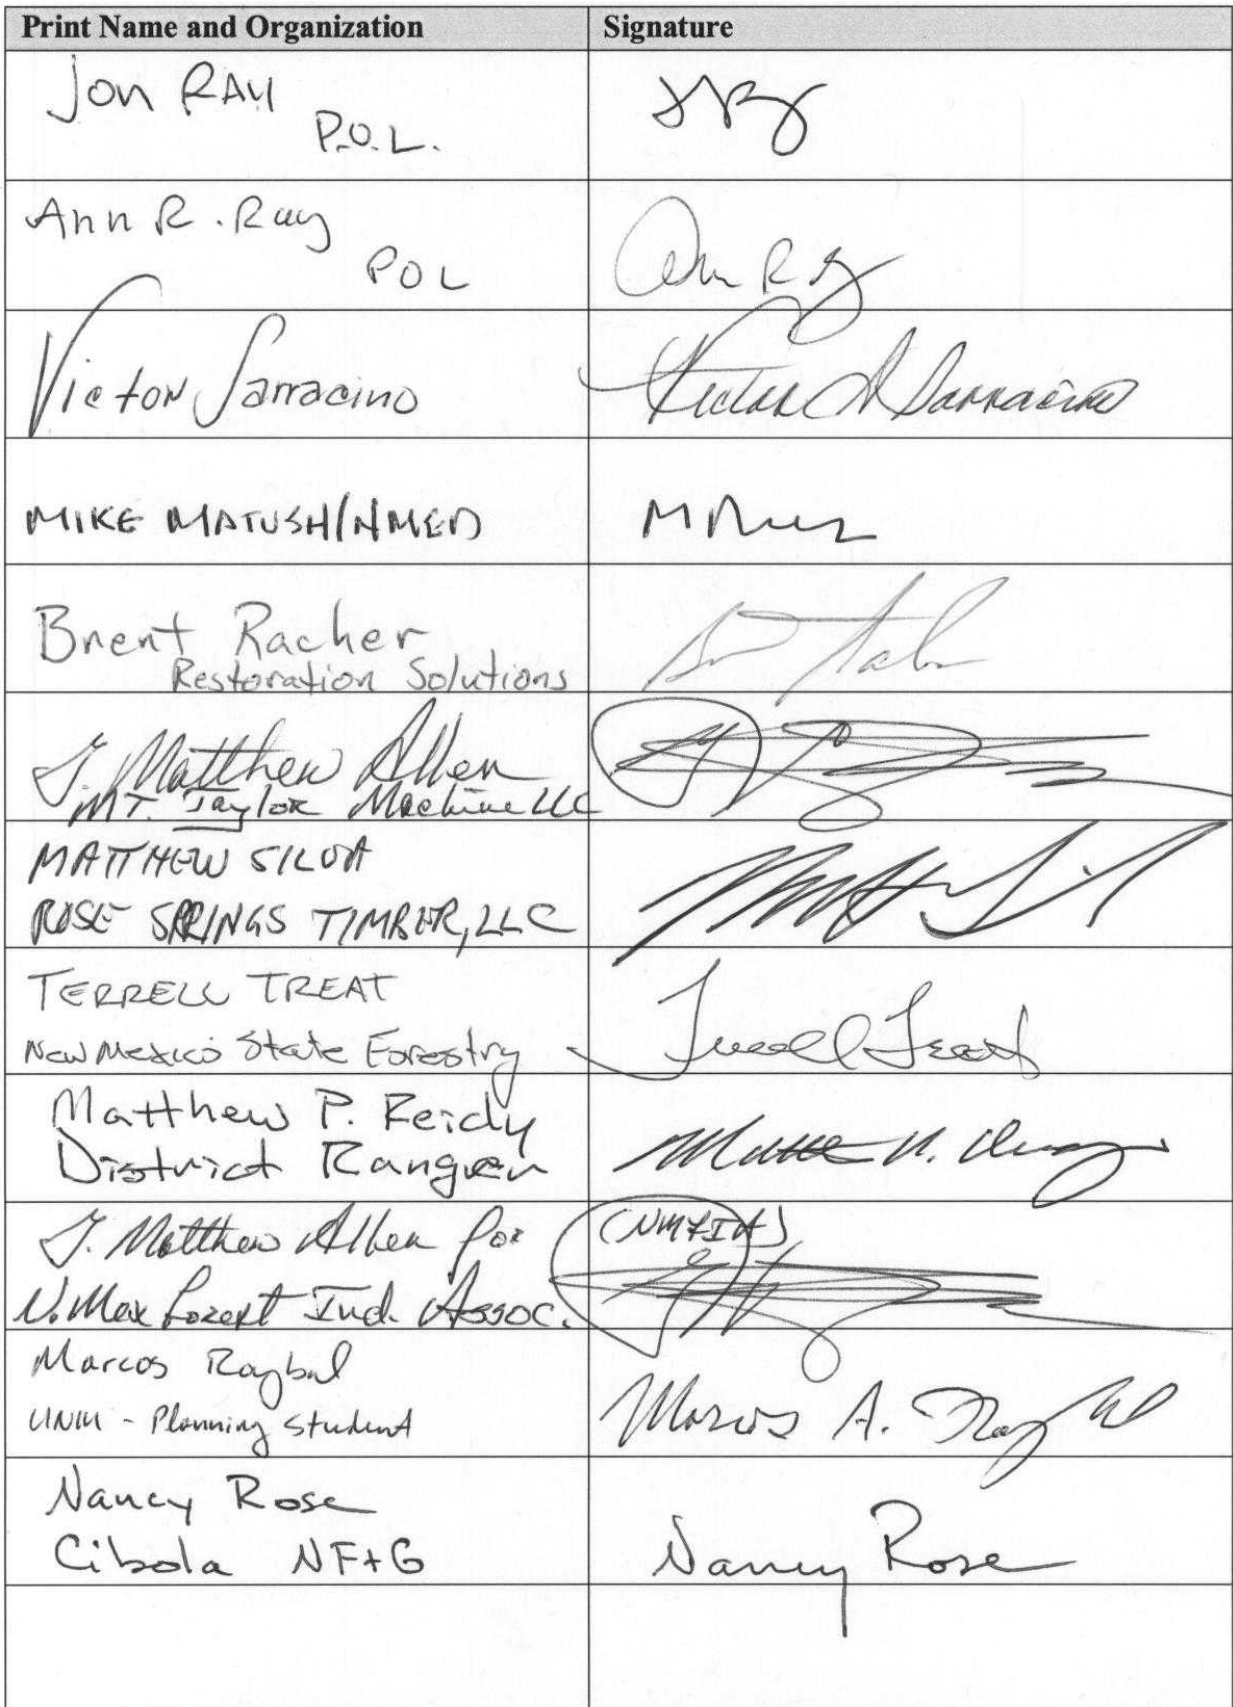 Print Name and Organization
Signature
Jon RAY
P.O.L.
Ann R. Ray
POL
Ann R Ray
Victor Sarracino
Victor A Sarracino
MIKE MATUSH/NMED
Brent Racher
Restoration Solutions
J. Matthew Allen
MT. Taylor Machine LLC
MATTHEW SILVA
ROSE SPRINGS TIMBER, LLC
TERRELL TREAT
New Mexico State Forestry
Terrell Treat
Matthew P. Reidy
District Ranger
J. Matthew Allen for
(NMFIA)
N. Mex Forest Ind. Assoc.
Marcos Roybal
UNM - Planning Student
Marcos A. Roybal
Nancy Rose
Cibola NF+G
Nancy Rose